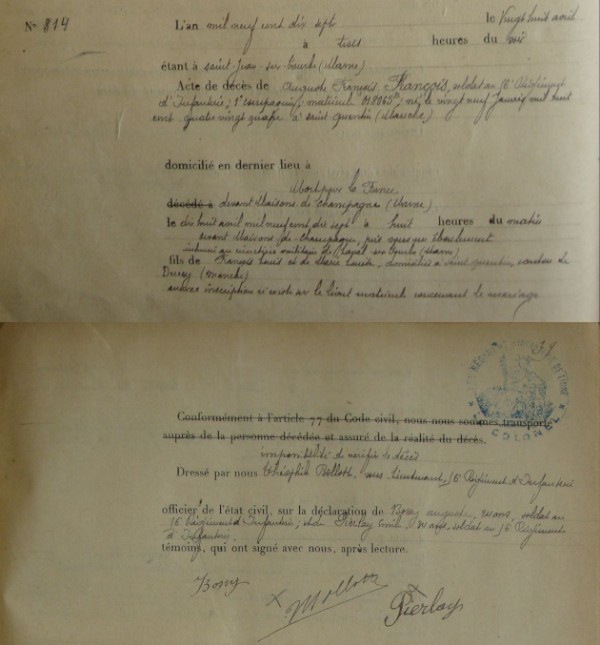 No 814
L'an mil neuf cent dix sept le Vingt huit avril
à treize heures du soir
étant à saint Jean sur Tourbe (Marne)
Acte de décès de Auguste François François, soldat au Régiment
d'Infanterie, 1e compagnie, matricule né le vingt neuf janvier mil huit
cent quatre vingt à saint quentin (Manche)
domicilié en dernier lieu à
Mort pour la France
décédé à devant Maisons de champagne (Marne)
le dix huit avril mil neuf cent dix sept à huit heures du matin
devant Maisons de Champagne,
inhumé au cimetière militaire de (Marne)
fils de François Louis et de Marie Louise, domiciliés à saint quentin, canton de
Ducey (Manche)
aucune inscription n'existe sur le livret matricule concernant le mariage
Conformément à l'article 77 du Code civil, nous nous sommes transporté
auprès de la personne décédée et assuré de la réalité du décès.
impossibilité de vérifier le décès
Dressé par nous Théophile sous lieutenant, Régiment d'Infanterie
officier de l'état civil, sur la déclaration de Bony auguste, ans, soldat au
Régiment d'Infanterie, et de Pierlay ans, soldat au Régiment
d'Infanterie
témoins, qui ont signé avec nous, après lecture.
Bony Pierlay